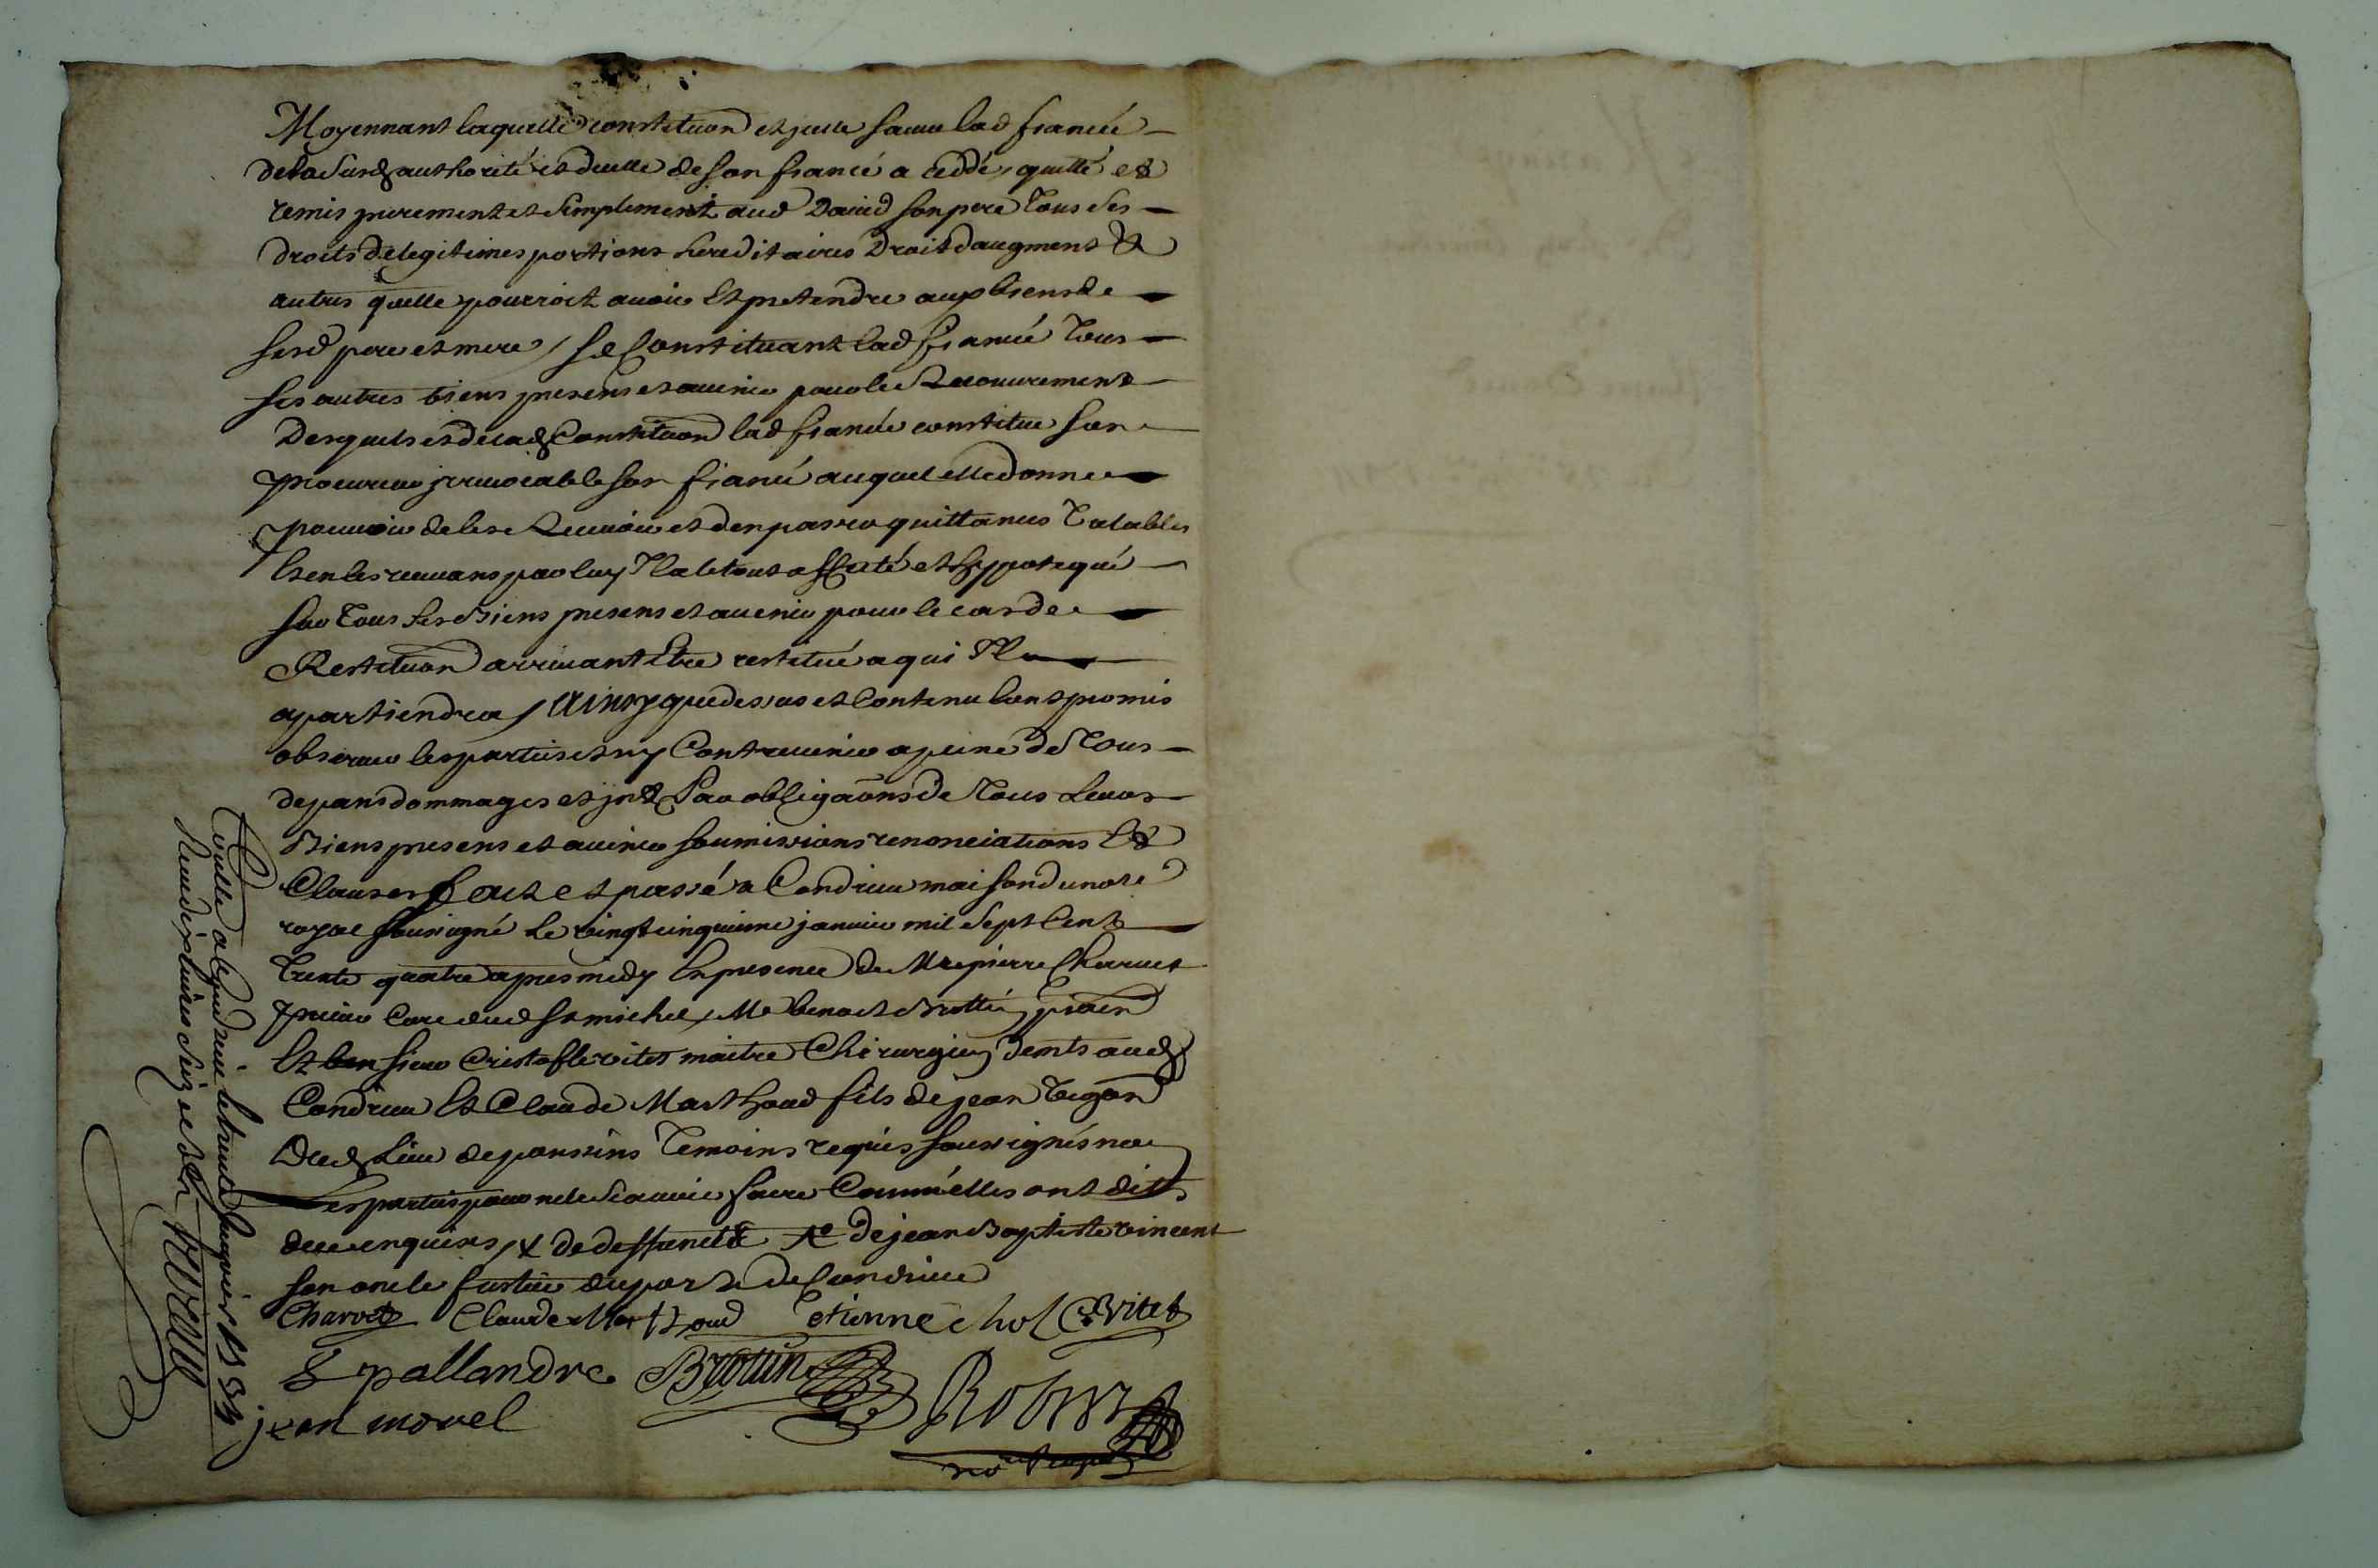 Moyennant laquelle constituon et icelle sauve lad fiancée
de la susd authorité et d'icelle de son fiancé a ceddé, quitté et
remis purement et simplement aud David son pere tous ses
droits de legitimes portions hereditaires Droit daugment &
autres quelle pourroit avoir Et pretendre aux biens de
sesd pere et mere / se Constituant lad fiancée tous
ses autres biens presens et avenir pour le Recouvrement
Desquels et de lad Constituon lad fiancée constitue son
procureur jrrevocable son fiancé auquel elle donne
pouvoir de les Recevoir et den passer quittances Valables
Et en les recevans par luy Il a le tout affecté et hypotequé
sur tous ses Biens presens et avenir pour le cas de
Restituon arrivant Etre restitué a qui Il
apartiendra / Ainsy que dessus est Contenu l'ont promis
observer les parties et ny Contrevenir a peine de Tous
depans dommages et jnts Par obligaons de Tous Leurs
Biens presens et avenir soumissions renonciations Et
Clauses fait et passé a Condrieu maison du nore
royal soussigné Le vingt cinquieme janvier mil Sept Cent
trente quatre apres midy En presence de Mre pierre Charvet
curé dud St michel, Me benoit Brottin praen
Et sieur Cristofle vitet maitre Chirurgien dud
Condrieu Et Claude Marthoud fils de jean
dud Lieu de Temoins requis soussignés non
Les parties pour ne le Scavoir faire Comme elles ont dit
de ce enquises / + de deffuncte +e de jean Baptiste vincent
son oncle du port de Condrieu
Charvet Claude Marthoud etienne chol C Vitet
pallandre Brottin Robert
jean morel
nore royal
Controllé a le trente janvier 1734
Receu